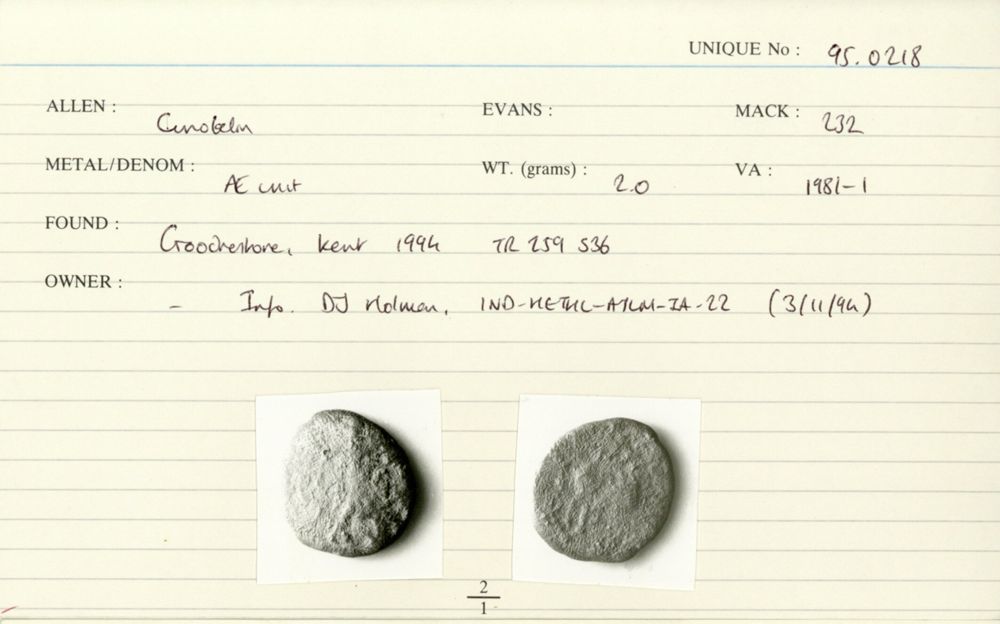 UNIQUE No : 95.0218
ALLEN : Cunobelin EVANS : MACK : 232
METAL/DENOM : Æ unit WT. (grams) : 2.0 VA : 1981-1
FOUND : Kent 1994 TR 259 536
OWNER : - Info. DJ Holman, (3/11/94)
2
1